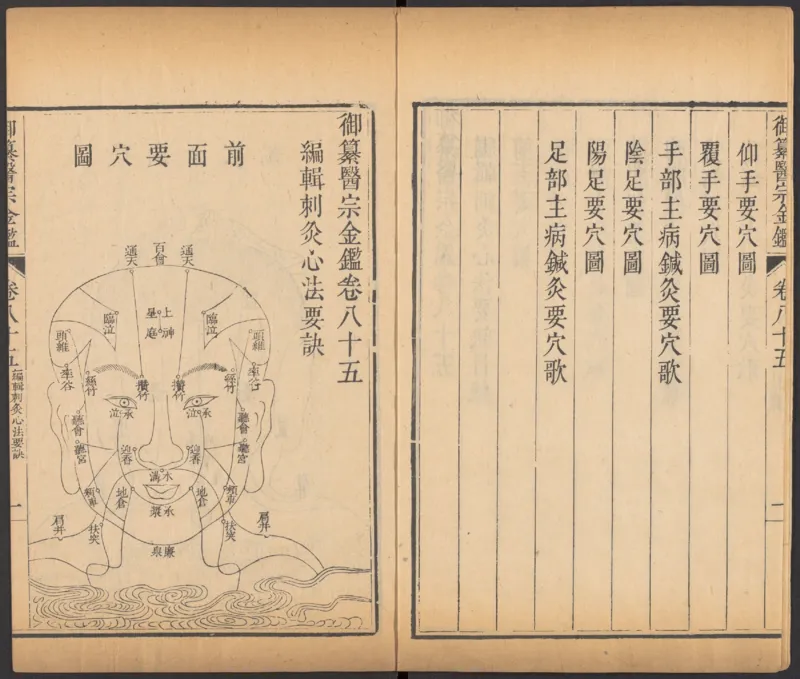 御纂醫宗金鑑
卷八十五
一
仰手要穴圖
覆手要穴圖
手部主病鍼灸要穴歌
陰足要穴圖
陽足要穴圖
足部主病鍼灸要穴歌
御纂醫宗金鑑卷八十五
編輯刺灸心法要訣
前面要穴圖
通天
百會
通天
臨泣
上星
神庭
臨泣
頭維
頭維
率谷
率谷
絲竹
絲竹
攢竹
攢竹
承泣
承泣
聽會
聽會
聽宮
聽宮
迎春
迎春
水溝
頰車
頰車
地倉
地倉
承漿
扶突
扶突
肩井
肩井
廉泉
御纂醫宗金鑑
卷八十五
編輯刺灸心法要訣
一